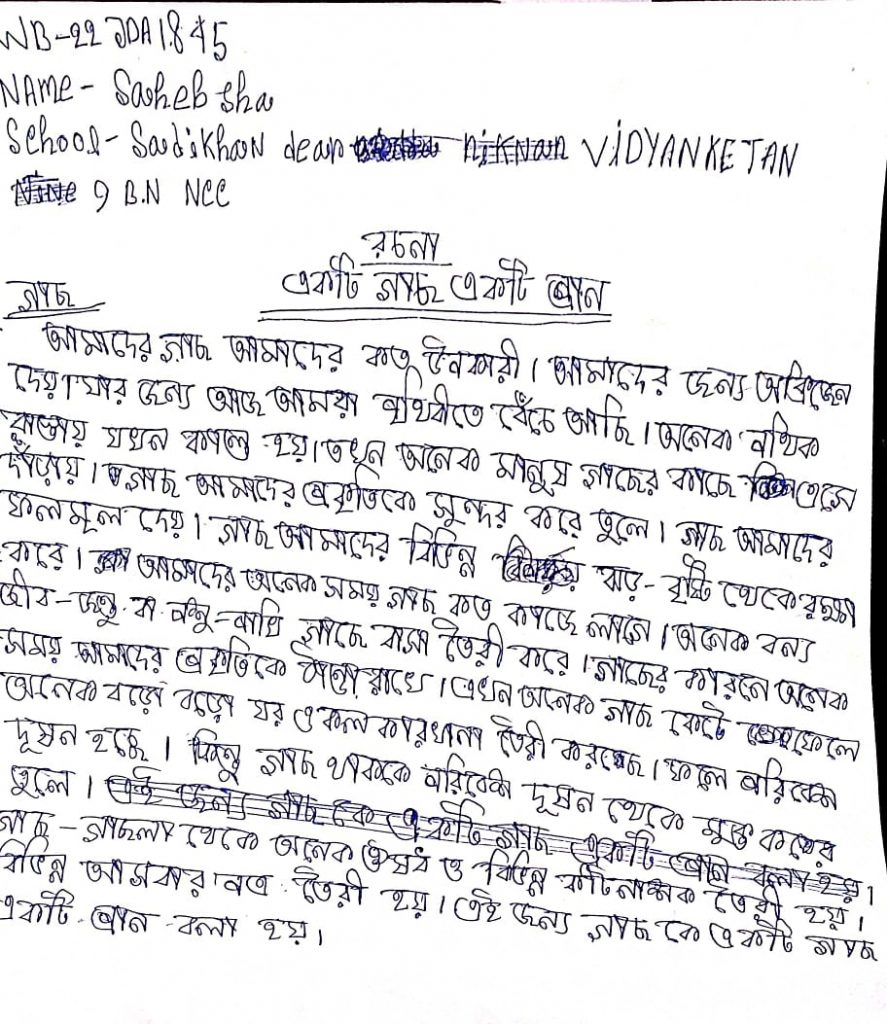 WB-22 JDA 1845
NAME - Saheb Sha
School - Sadikhan dear VIDYANKETAN
9 B.N NCC
রচনা
একটি গাছ একটি প্রান
গাছ
আমাদের গাছ আমাদের কত উপকারী। আমাদের জন্য অক্সিজেন
দেয়। যার জন্য আজ আমরা পৃথিবীতে বেঁচে আছি। অনেক পথিক
রাস্তায় যখন ক্লান্ত হয়। তখন অনেক মানুষ গাছের কাছে এসে
দাঁড়ায়। গাছ আমাদের প্রকৃতিকে সুন্দর করে তুলে। গাছ আমাদের
ফলমূল দেয়। গাছ আমাদের বিভিন্ন ঝড়-বৃষ্টি থেকে রক্ষা
করে। আমাদের অনেক সময় গাছ কত কাজে লাগে। অনেক বন্য
জীব-জন্তু বা পশু-পাখি গাছে বাসা তৈরী করে। গাছের কারনে অনেক
সময় আমাদের প্রকৃতিকে ঠান্ডা রাখে। এখন অনেক গাছ কেটে ফেলে
অনেক বড়ো বড়ো ঘর ও কল কারখানা তৈরী করছে। ফলে পরিবেশ
দূষন হচ্ছে। কিন্তু গাছ থাকলে পরিবেশ দূষন থেকে মুক্ত করে
তুলে। এই জন্য গাছ কে একটি গাছ একটি প্রান বলা হয়।
গাছ-গাছলা থেকে অনেক ঔষধ ও বিভিন্ন কীটনাশক তৈরী হয়।
বিভিন্ন আসবাবপত্র তৈরী হয়। এই জন্য গাছ কে একটি গাছ
একটি প্রান বলা হয়।